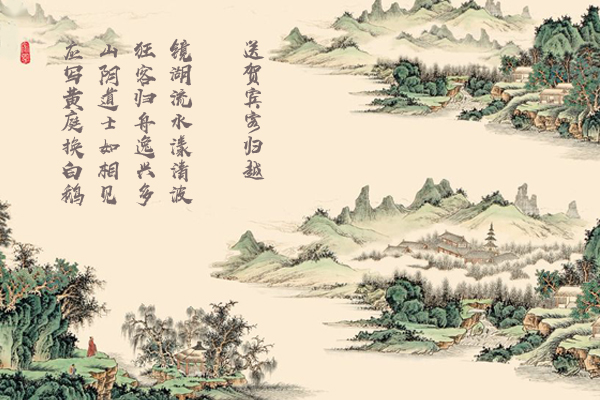 送贺宾客归越
镜湖流水漾清波
狂客归舟逸兴多
山阴道士如相见
应写黄庭换白鹅